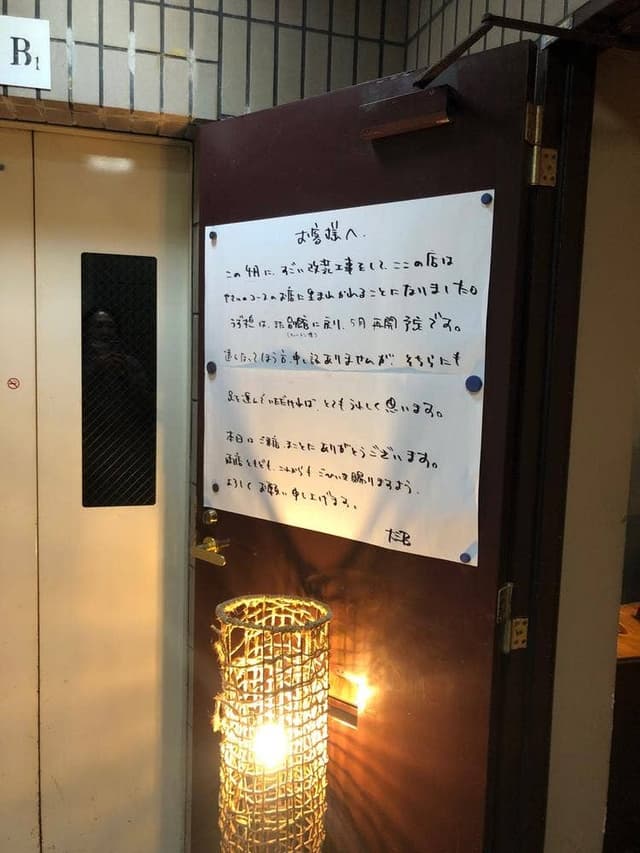 B1
お客様へ.
この4月に、すごい改装工事をして、ここの店は
やさいのコースのお店に生まれかわることになりました。
は、 に戻り、5月再開予定です。
遠くなってしまう方、申し訳ありませんが、そちらにも
足を運んでいただければ、とてもうれしく思います。
本日はご来店、まことにありがとうございます。
両店ともども、これからもごひいきを賜りますよう、
よろしくお願い申し上げます。